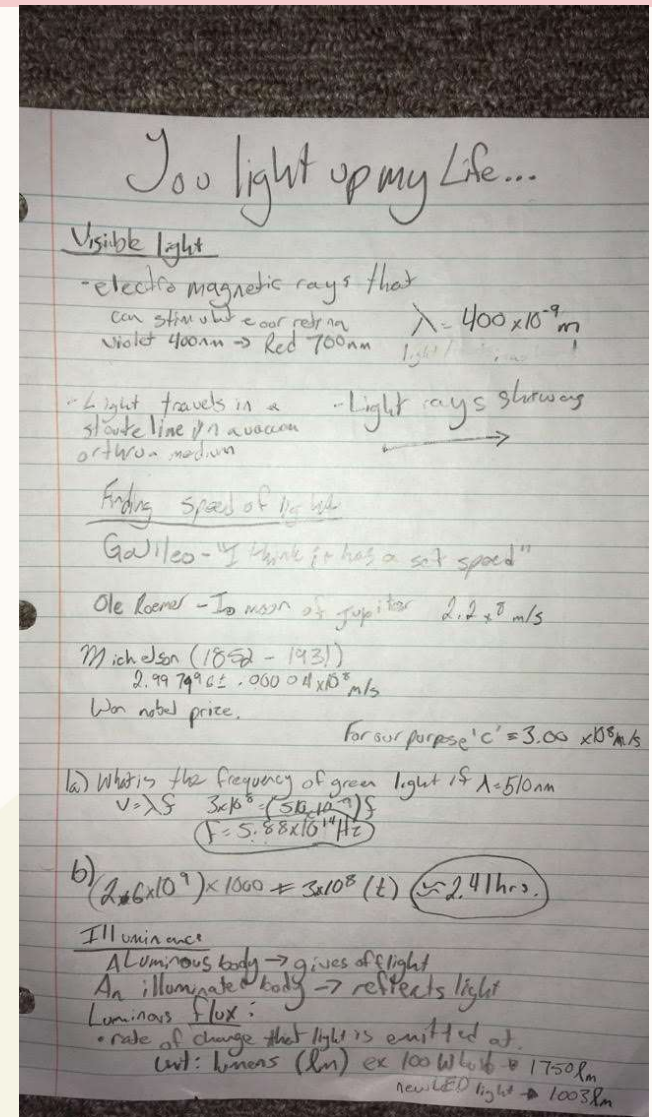 You light up my Life...
Visible light
- electro magnetic rays that
can stimulate our retina
Violet 400nm → Red 700nm
λ = 400 x10⁻⁹ m
light
- Light travels in a
line in a vacuum
or thru a medium
- Light rays
Finding speed of light
Galileo - "I think it has a set speed"
Ole Roemer - Io moon of Jupiter 2.2 x⁸ m/s
Michelson (1852 - 1931)
2.997996 ± .00004 x10⁸ m/s
Won nobel price.
For our purpose 'c' = 3.00 x10⁸ m/s
1a) What is the frequency of green light if λ = 510nm
v = λf 3x10⁸ = (510x10⁻⁹)f
f = 5.88x10¹⁴ Hz
b) (2.6x10⁹) x 1000 = 3x10⁸ (t) ≈ 2.41hrs.
Illuminance
A Luminous body → gives off light
An illuminated body → reflects light
Luminous flux :
• rate of change that light is emitted at.
Unit: lumens (lm) ex 100 W bulb → 1750 lm
new LED light → 1003 lm